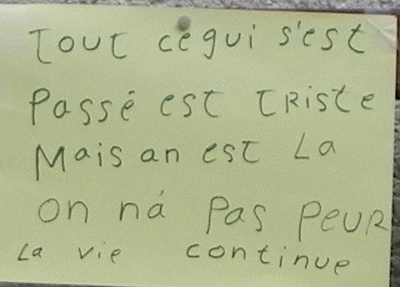 Tout ce qui s'est
Passé est triste
Mais an est La
on ná Pas PeuR
La vie continue